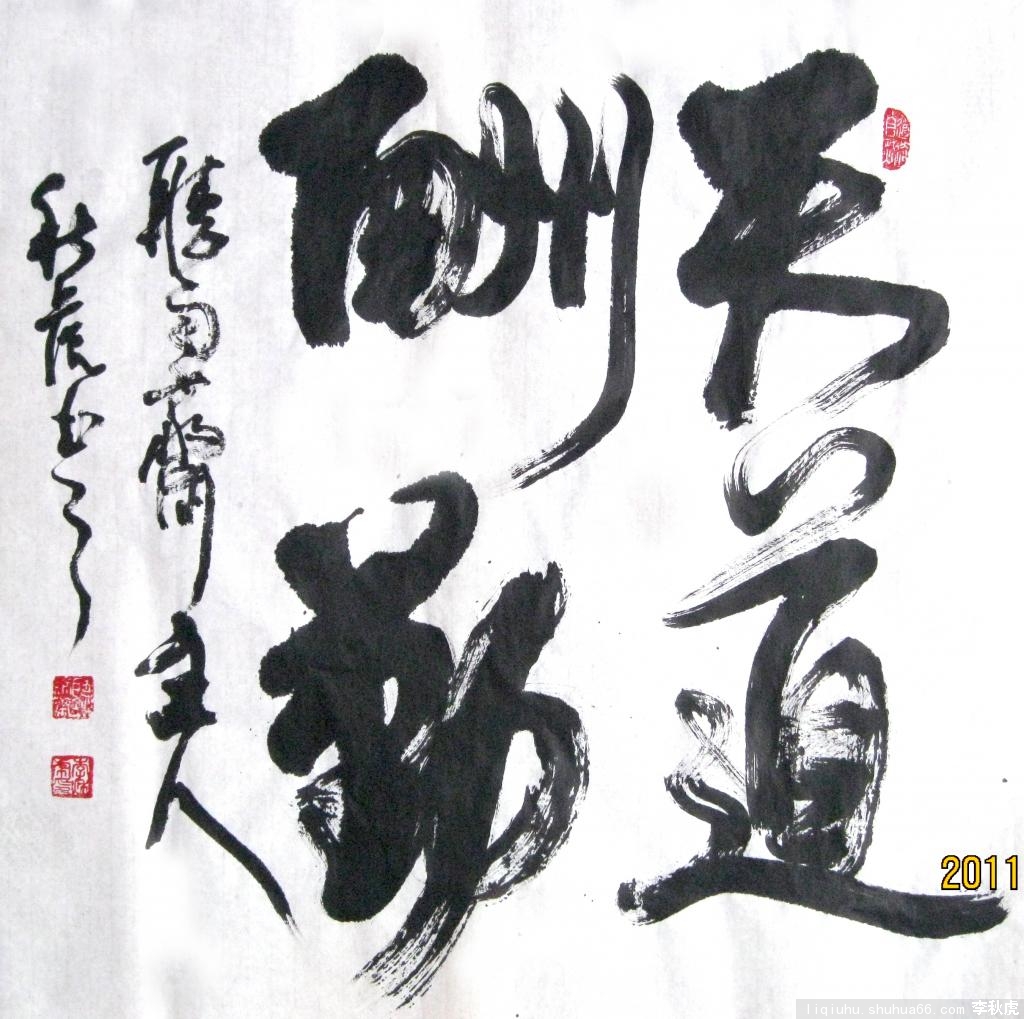 天道
酬勤
聴雨齋主人
秋虎书之
2011
liqiuhu.shuhua66.com 李秋虎